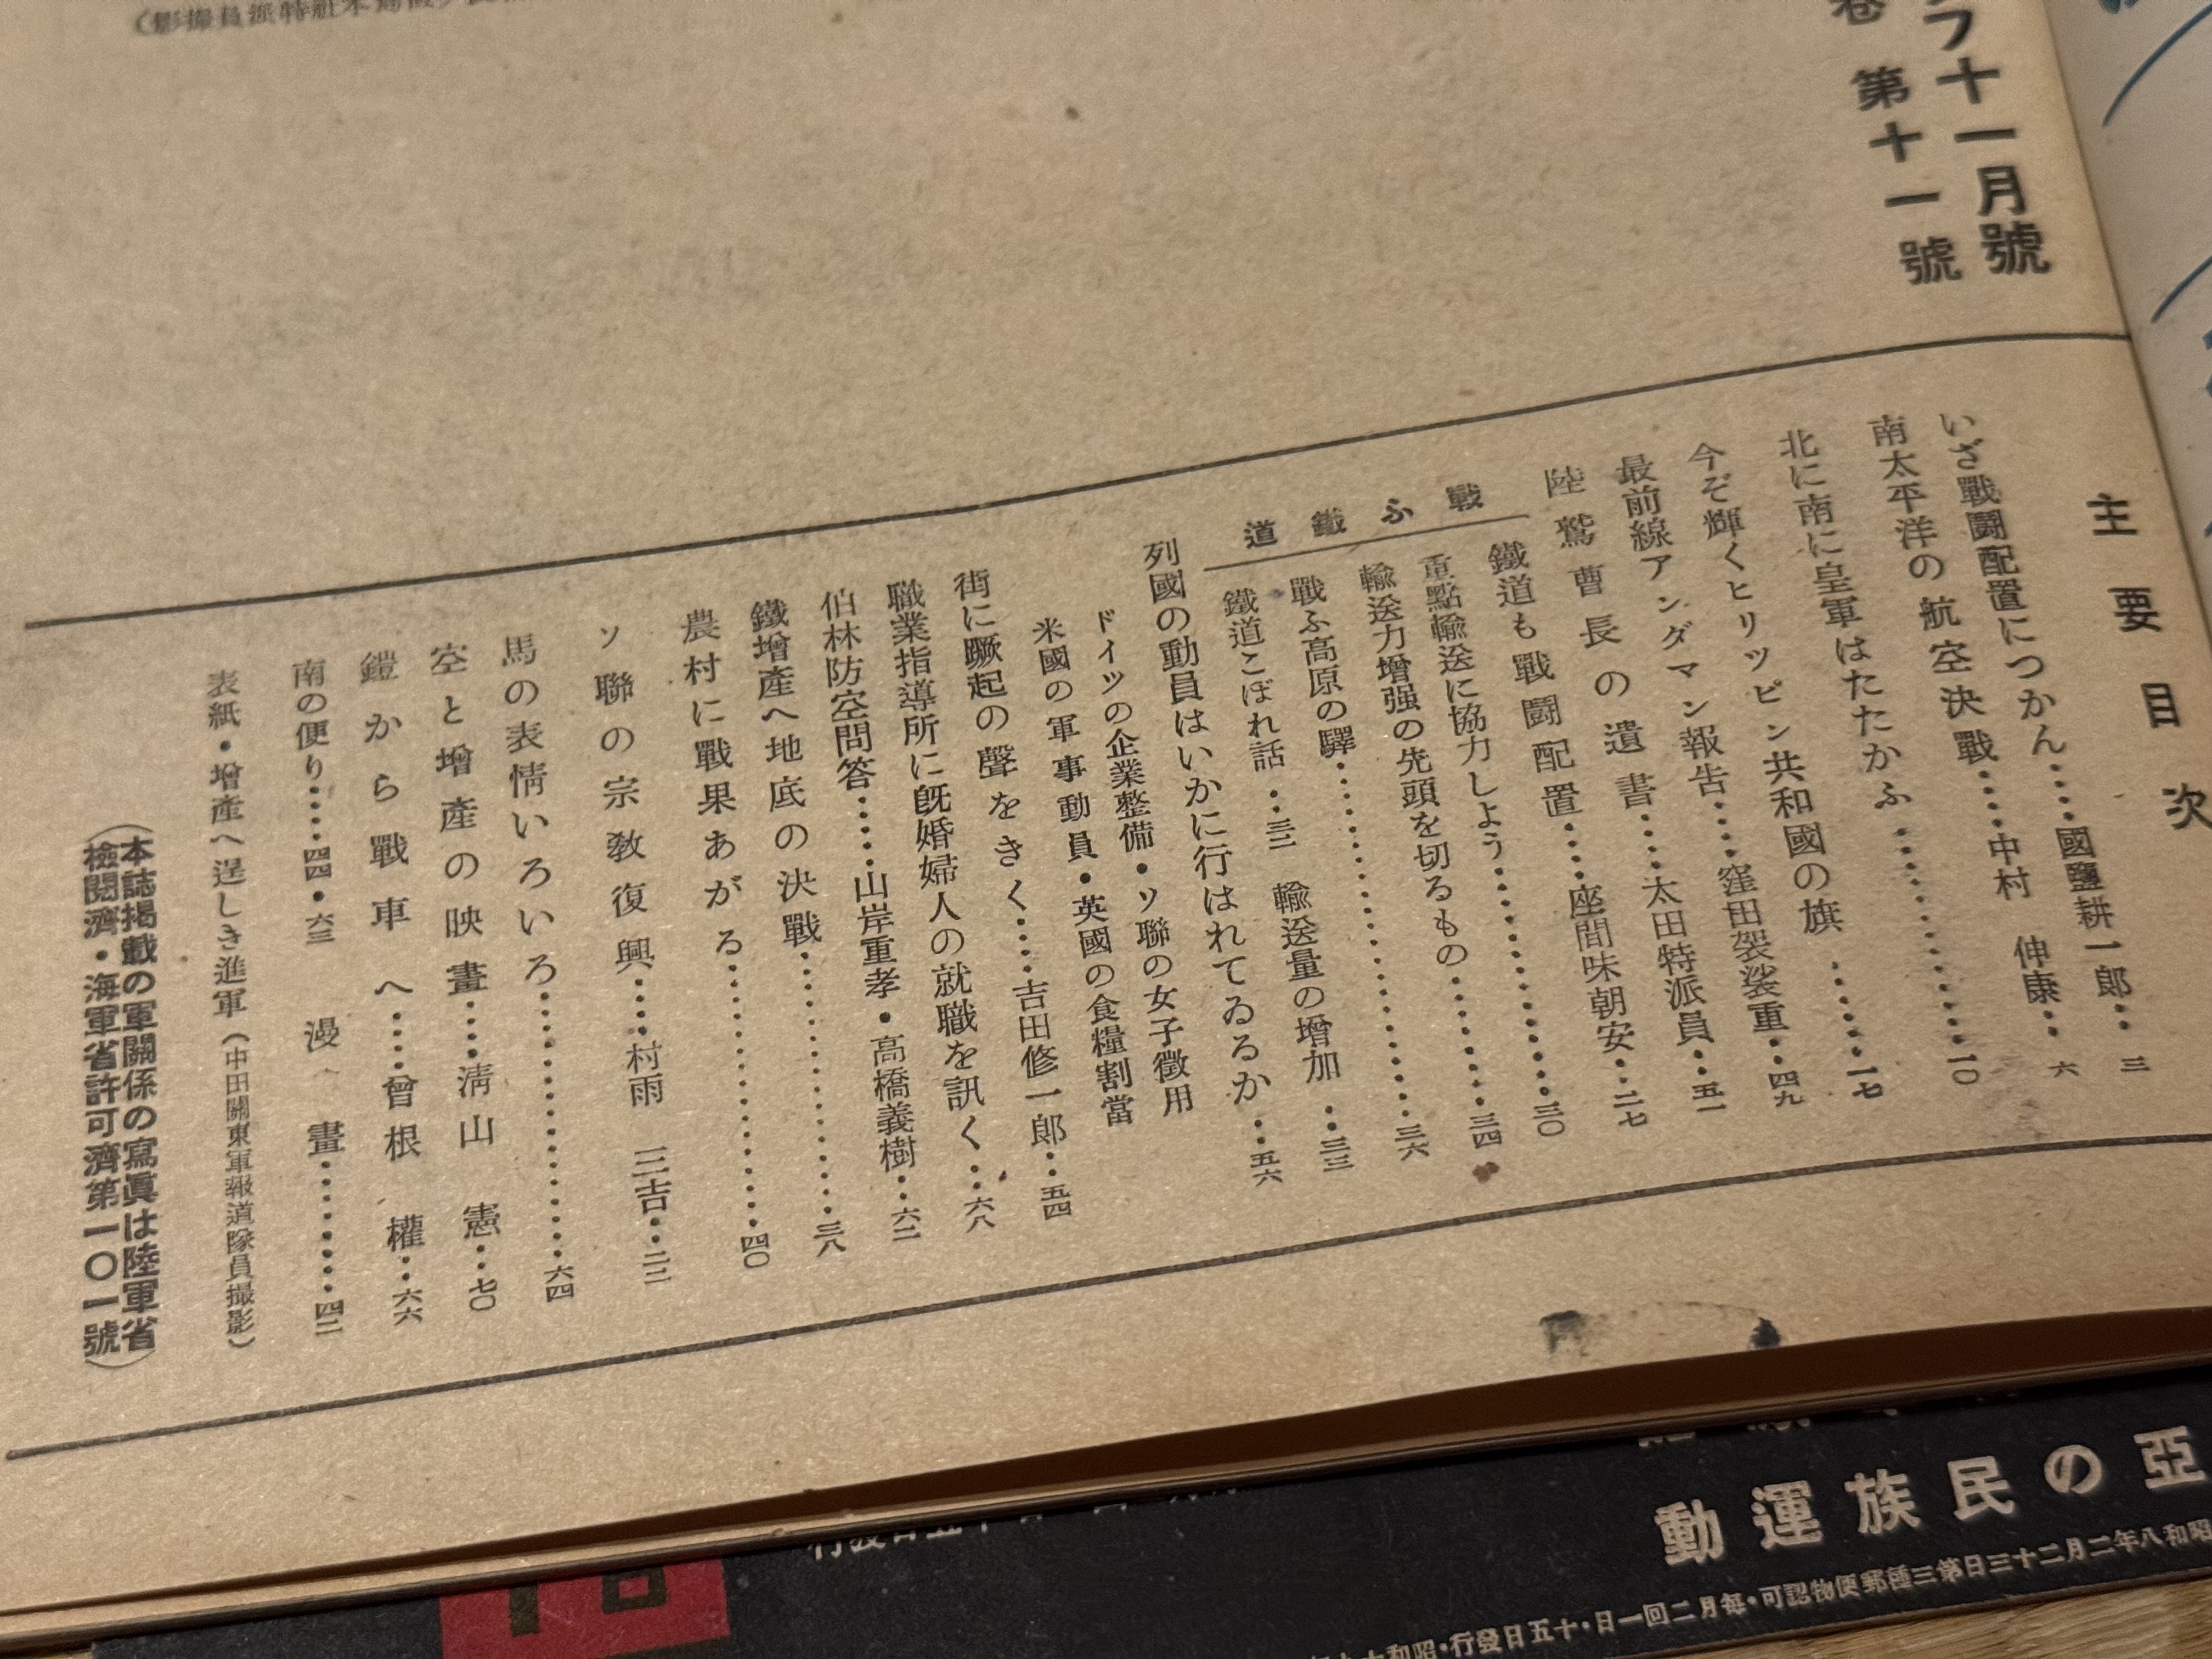 フ十一月號
卷 第十一號
主要目次
いざ戰鬪配置につかん……國鹽耕一郎…三
南太平洋の航空決戰……中村 伸康…六
北に南に皇軍はたたかふ……………一〇
今ぞ輝くヒリッピン共和國の旗……一七
最前線アンダマン報告……窪田袈裟重…四九
陸鷲曹長の遺書……太田特派員…五一
鐵道も戰鬪配置……座間味朝安…二七
戰ふ鐵道
重點輸送に協力しよう……………三〇
輸送力增强の先頭を切るもの………三四
戰ふ高原の驛……………三六
鐵道こぼれ話…三二 輸送量の增加…三三
列國の動員はいかに行はれてゐるか…五六
ドイツの企業整備・ソ聯の女子徵用
米國の軍事動員・英國の食糧割當
街に蹶起の聲をきく……吉田修一郎…五四
職業指導所に旣婚婦人の就職を訊く…六八
伯林防空問答……山岸重孝・高橋義樹…六二
鐵增產へ地底の決戰……………三八
農村に戰果あがる……………四〇
ソ聯の宗敎復興……村雨 三吉…二二
馬の表情いろいろ……………六四
空と增產の映畫……淸山 憲…七〇
鎧から戰車へ……曾根 權…六六
南の便り……四四・六三 漫畫………四二
表紙・增產へ逞しき進軍(中田關東軍報道隊員撮影)
(本誌揭載の軍關係の寫眞は陸軍省
檢閱濟・海軍省許可濟第一〇一號)
亞の民族運動
昭和八年二月二十三日第三種郵便物認可・每月二回一日・十五日發行・昭和十